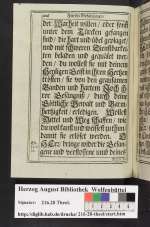 der Warheit willen / oder sonst
unter dem Türcken gefangen
sind / die hart und übel geplaget /
und mit schwerer Dienstbarkeit
beladen und gequälet werden
du wollest sie mit deinem
Heiligen Geist in ihren Hertzen
trösten / sie von den grausamen
Banden und hartem Joch
der Gefängnis / durch deine
Göttliche Gewalt und Barmhertzigkeit
erledigen. Weist
Mittel und Weg
du wol kanst und weissest
damit sie erlöset werden. O
HErr, bringe wider die Gefangene
und verstossene und deines
Herzog August Bibliothek Wolfenbüttel
Signatur: 216.28 Theol.
http://diglib.hab.de/drucke/216-28-theol/start.htm